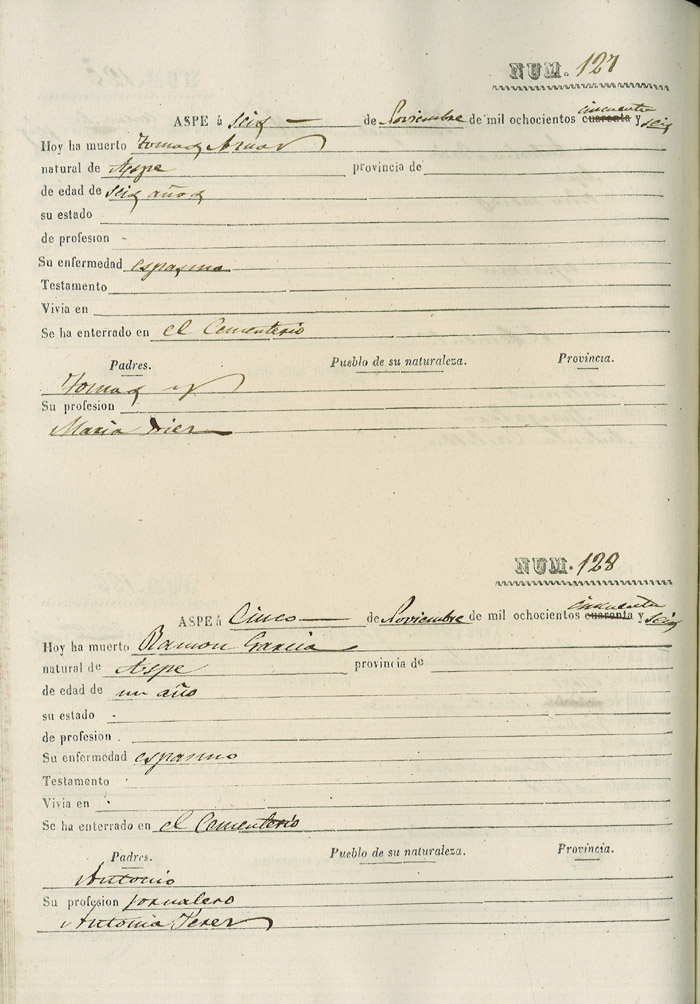 NUM. 127
ASPE á seis de Noviembre de mil ochocientos cuarenta cincuenta y seis
Hoy ha muerto Tomas
natural de Aspe provincia de
de edad de seis años
su estado
de profesion
Su enfermedad espasmo
Testamento
Vivia en
Se ha enterrado en el Cementerio
Padres. Pueblo de su naturaleza. Provincia.
Tomas
Su profesion
Maria
NUM. 128
ASPE á Cinco de Noviembre de mil ochocientos cuarenta cincuenta y seis
Hoy ha muerto Ramon Garcia
natural de Aspe provincia de
de edad de un año
su estado
de profesion
Su enfermedad espasmo
Testamento
Vivia en
Se ha enterrado en el Cementerio
Padres. Pueblo de su naturaleza. Provincia.
Antonio
Su profesion Jornalero
Antonia Perez